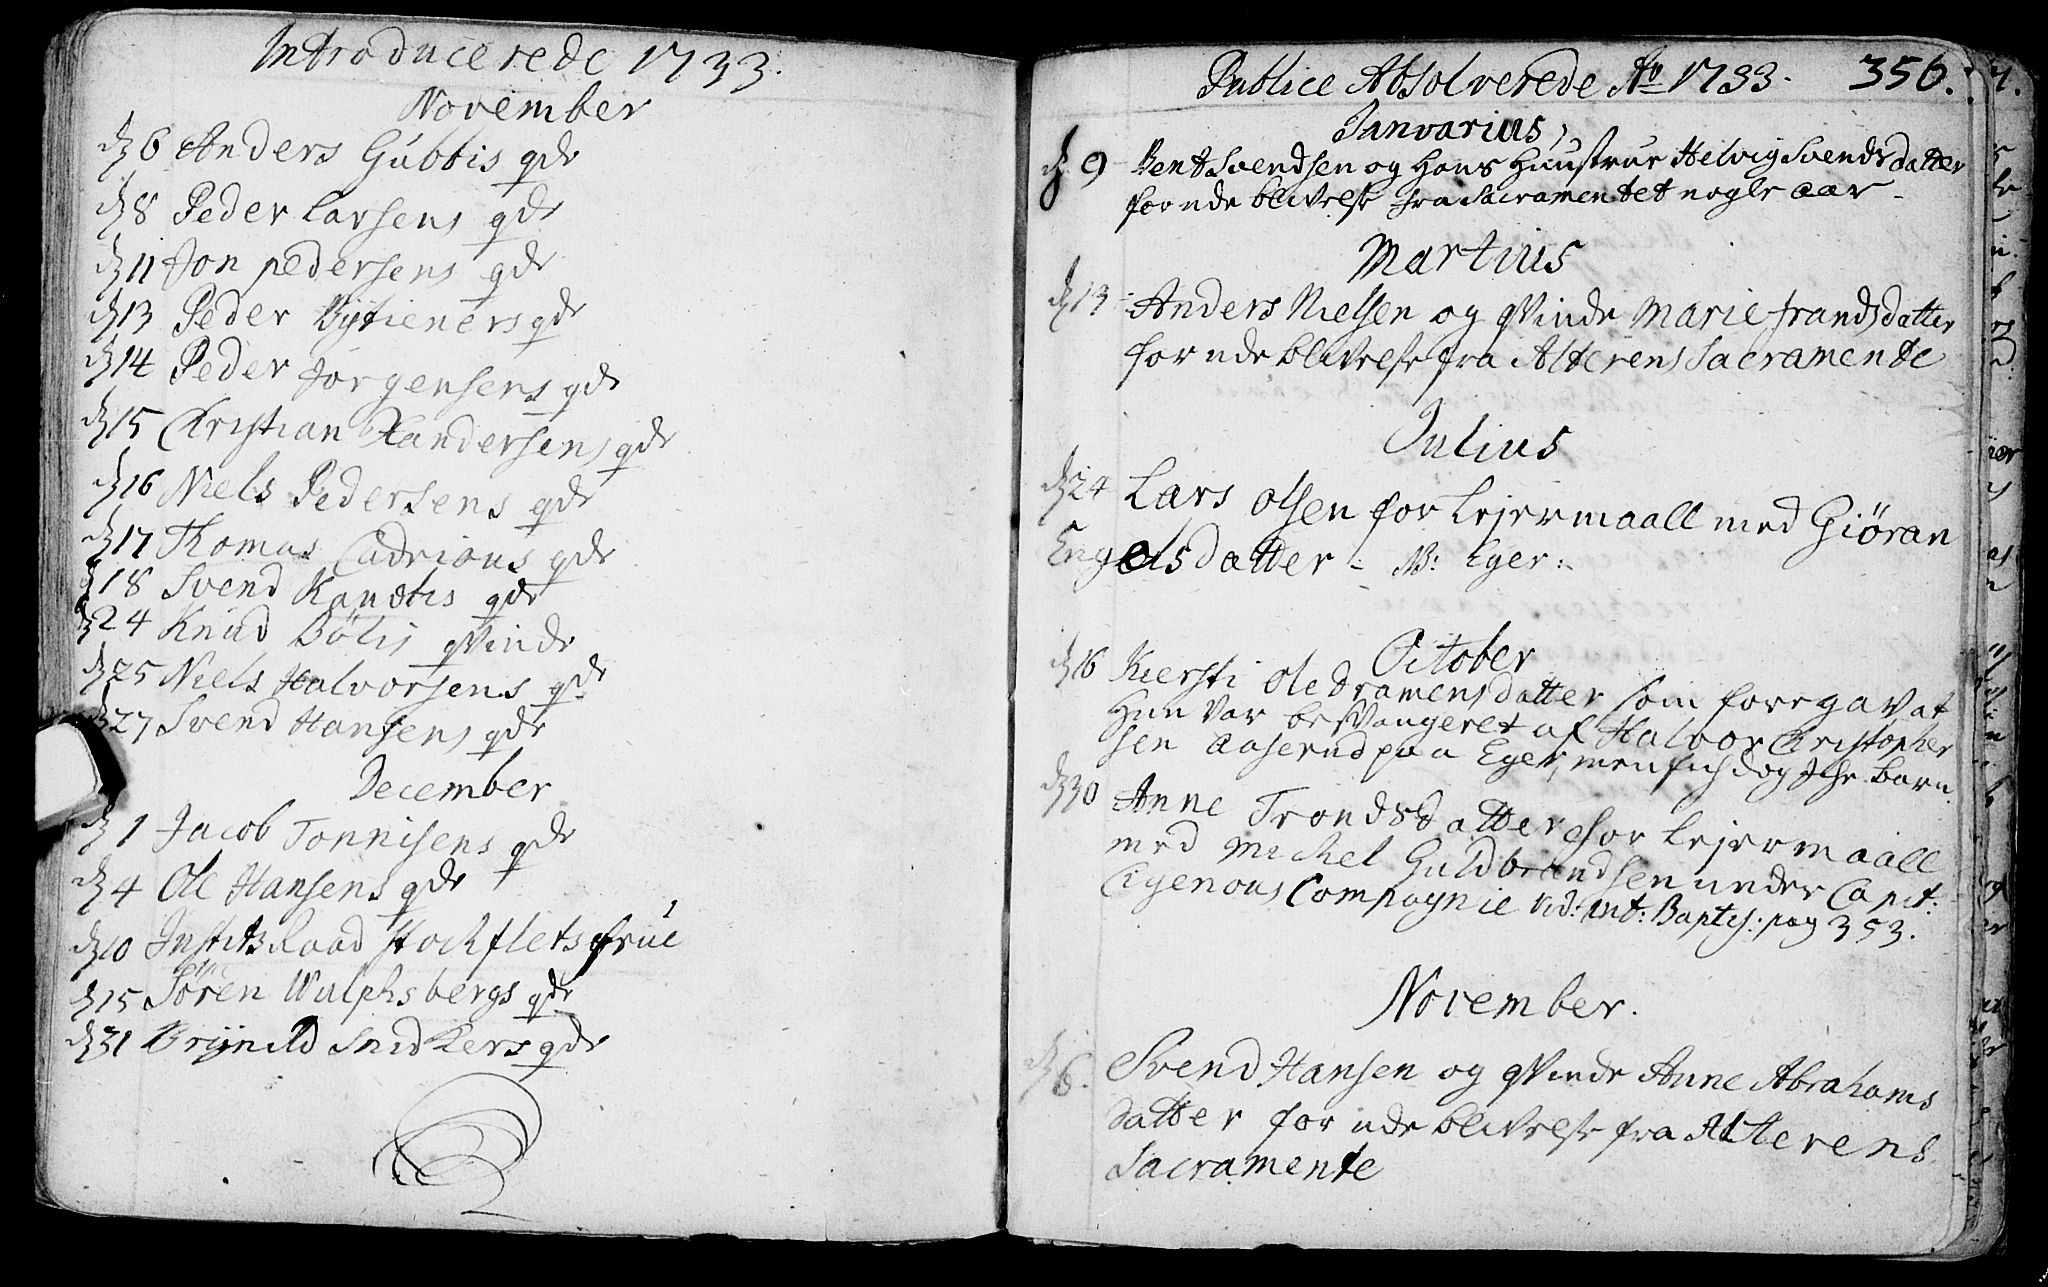 Introducerede 1733.
November
d 6 Anders Gúbbis qde
d 8 Peder Larsens qde
d 11 Jon pedersens qde
d 13 Peder Bytieners qde
d 14 Peder Jorgensens qde
d 15 Christian Xandersens qde
d 16 Niels Pedersens qde
d 17 Thomas Cadrious qde
d 18 Svend qde
d 24 Knud Bölis qvinde
d 25 Niels Halvorsens qde
d 27 Svend Hansens qde
December
d 1 Jacob Tonnisens qde
d 4 Ole Hansens qde
d 10 Justits Raad Stockflets frúe
d 15 Sören Wulphsbergs qde
d 31 Brynild Snidkers qde
Publice Absolverede Ao 1733. 356.
Januarius,
d 9 Bent Svendsen og Hans Huustrue Helvig Svendsdatter
for udeblivelse fra Sacramentet nogle aar -
Martius
d 13 Anders Nielsen og qvinde Marie frandsdatter
for udeblivelse fra Alterens Sacramente
Julius
d 24 Lars Olsen for Lejermaall med Giöran
Engelsdatter - NB: Eger:-
October
d 16 Kiersti Ole Dramensdatter som foregav at
Hun var besvangeret af Halvor Christopher
sen Aaserud paa Eger, men fich dog Iche barn.
d 30 Anne Trondsdatter for Lejermaall
med Michel Guldbrandsen under Capit:
Cigenous Compagnie vid: int: Baptis: pag 353.
November.
d 6. Svend Hansen og qvinde Anne Abrahams
datter for udeblivelse fra Alterens
Sacramente